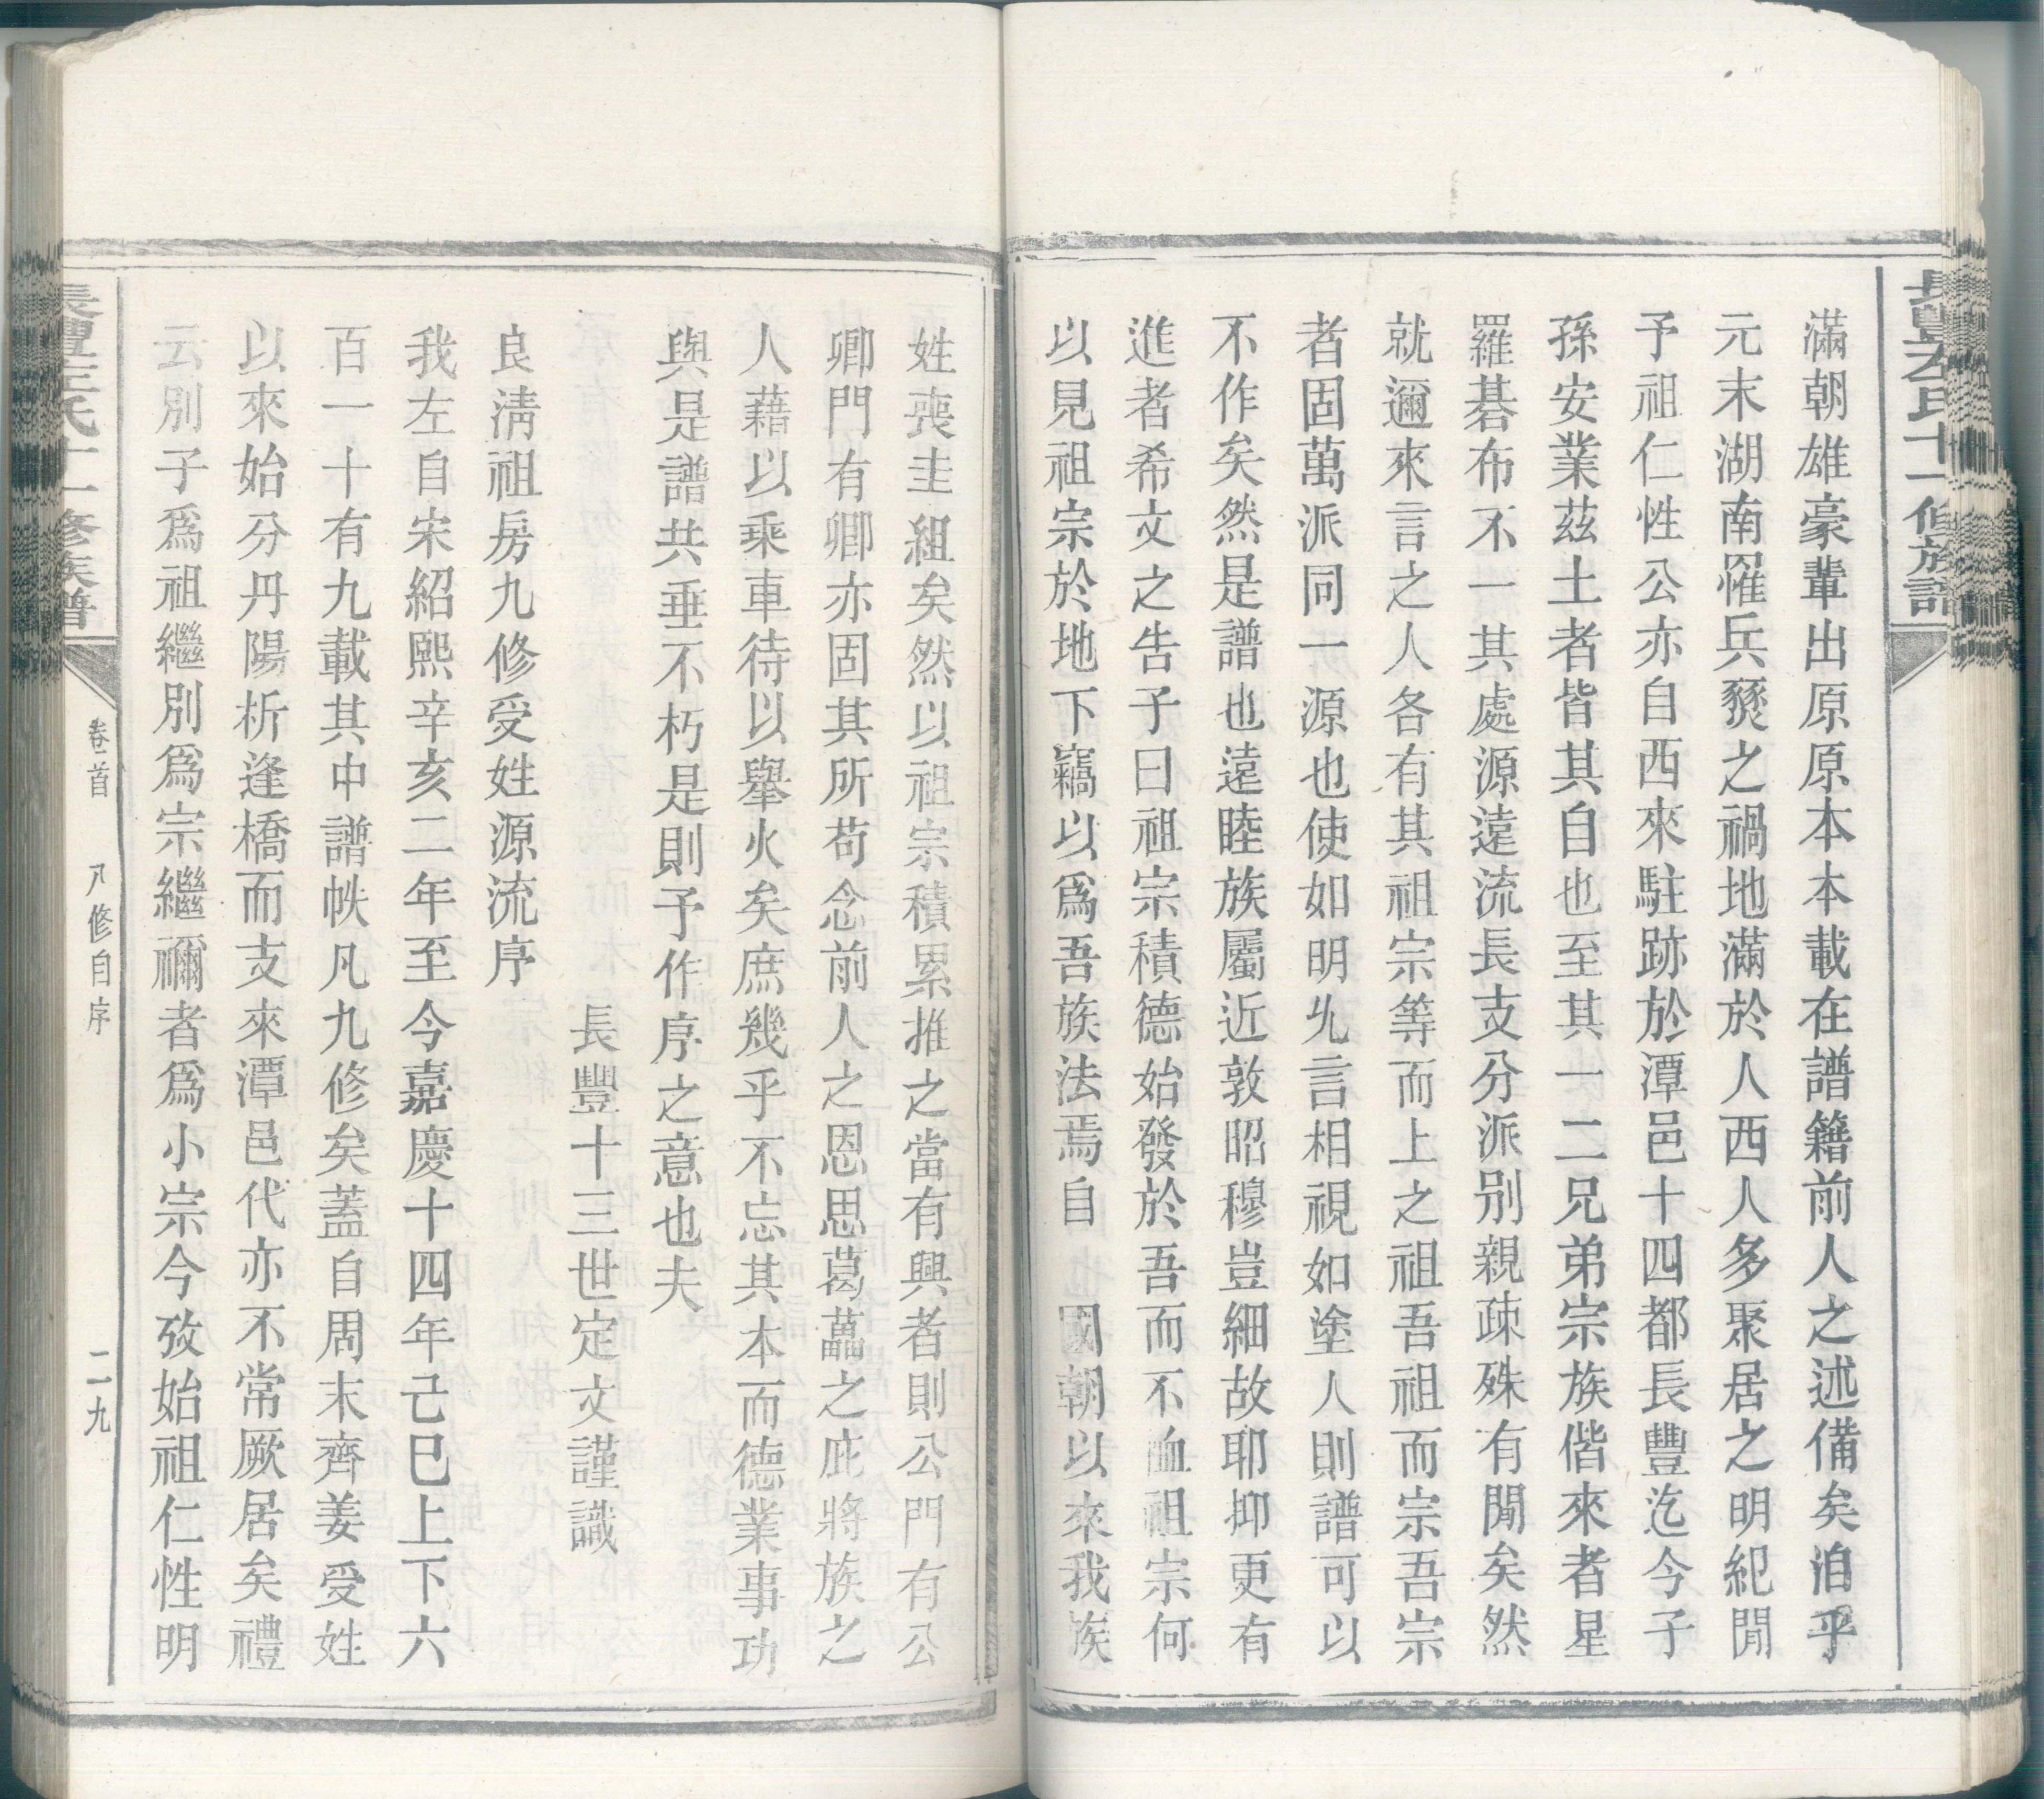 長豐左氏十一修族譜
滿朝雄豪輩出原原本本載在譜籍前人之述備矣洎乎
元末湖南罹兵燹之禍地滿於人西人多聚居之明紀閒
予祖仁性公亦自西來駐跡於潭邑十四都長豐迄今子
孫安業茲土者皆其自也至其一二兄弟宗族偕來者星
羅碁布不一其處源遠流長支分派別親疎殊有閒矣然
就邇來言之人各有其祖宗等而上之祖吾祖而宗吾宗
者固萬派同一源也使如明允言相視如塗人則譜可以
不作矣然是譜也遠睦族屬近敦昭穆豈細故耶抑更有
進者希文之告子曰祖宗積德始發於吾而不恤祖宗何
以見祖宗於地下竊以爲吾族法焉自 國朝以來我族
姓喪圭組矣然以祖宗積累推之當有興者則公門有公
卿門有卿亦固其所苟念前人之恩思葛藟之庇將族之
人藉以乘車待以舉火矣庶幾乎不忘其本而德業事功
與是譜共垂不朽是則予作序之意也夫
長豐十三世定文謹識
良淸祖房九修受姓源流序
我左自宋紹熙辛亥二年至今嘉慶十四年己巳上下六
百一十有九載其中譜帙凡九修矣蓋自周末齊姜受姓
以來始分丹陽析逢橋而支來潭邑代亦不常厥居矣禮
云別子爲祖繼別爲宗繼禰者爲小宗今攷始祖仁性明
長豐左氏十一修族譜
卷首 八修自序 二九